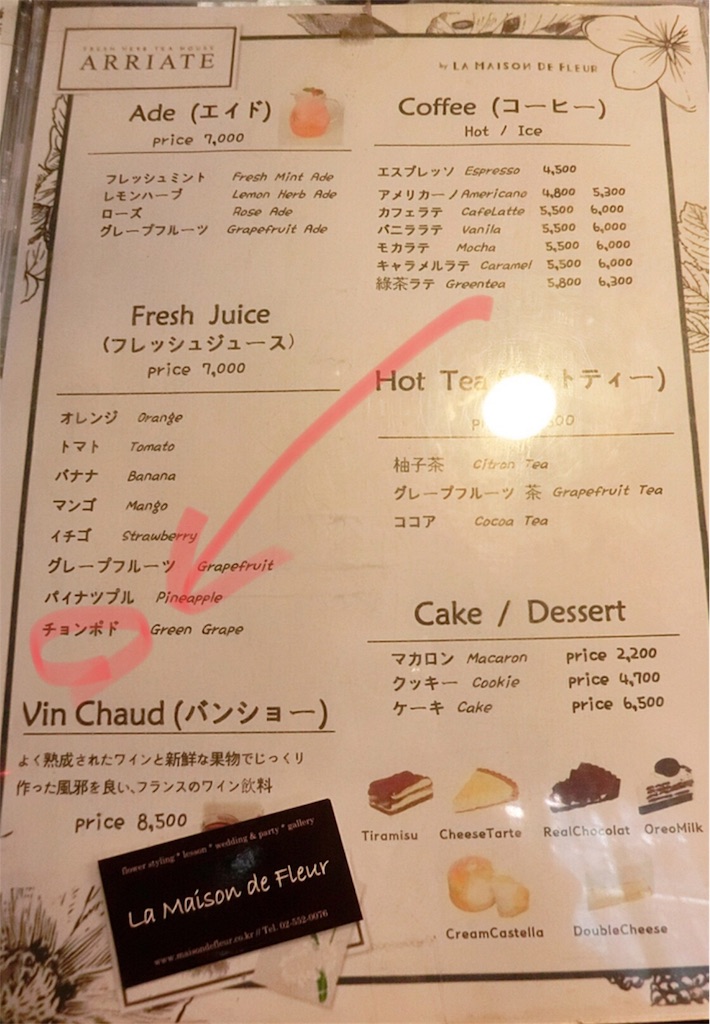 FRESH HERB TEA HOUSE
ARRIATE
by LA MAISON DE FLEUR
Ade (エイド)
price 7,000
フレッシュミント Fresh Mint Ade
レモンハーブ Lemon Herb Ade
ローズ Rose Ade
グレープフルーツ Grapefruit Ade
Fresh Juice
(フレッシュジュース)
price 7,000
オレンジ Orange
トマト Tomato
バナナ Banana
マンゴ Mango
イチゴ Strawberry
グレープフルーツ Grapefruit
パイナツプル Pineapple
チョンポド Green Grape
Vin Chaud (バンショー)
よく熟成されたワインと新鮮な果物でじっくり
作った風邪を良い、フランスのワイン飲料
price 8,500
Coffee (コーヒー)
Hot / Ice
エスプレッソ Espresso 4,500
アメリカーノ Americano 4,800 5,300
カフェラテ CafeLatte 5,500 6,000
バニララテ Vanila 5,500 6,000
モカラテ Mocha 5,500 6,000
キャラメルラテ Caramel 5,500 6,000
綠茶ラテ Greentea 5,800 6,300
Hot Tea トティー)
柚子茶 Citron Tea
グレープフルーツ 茶 Grapefruit Tea
ココア Cocoa Tea
Cake / Dessert
マカロン Macaron price 2,200
クッキー Cookie price 4,700
ケーキ Cake price 6,500
Tiramisu CheeseTarte RealChocolat OreoMilk
CreamCastella DoubleCheese
flower styling * lesson * wedding & party * gallery
La Maison de Fleur
www.maisondefleur.co.kr // Tel. 02-552-0076